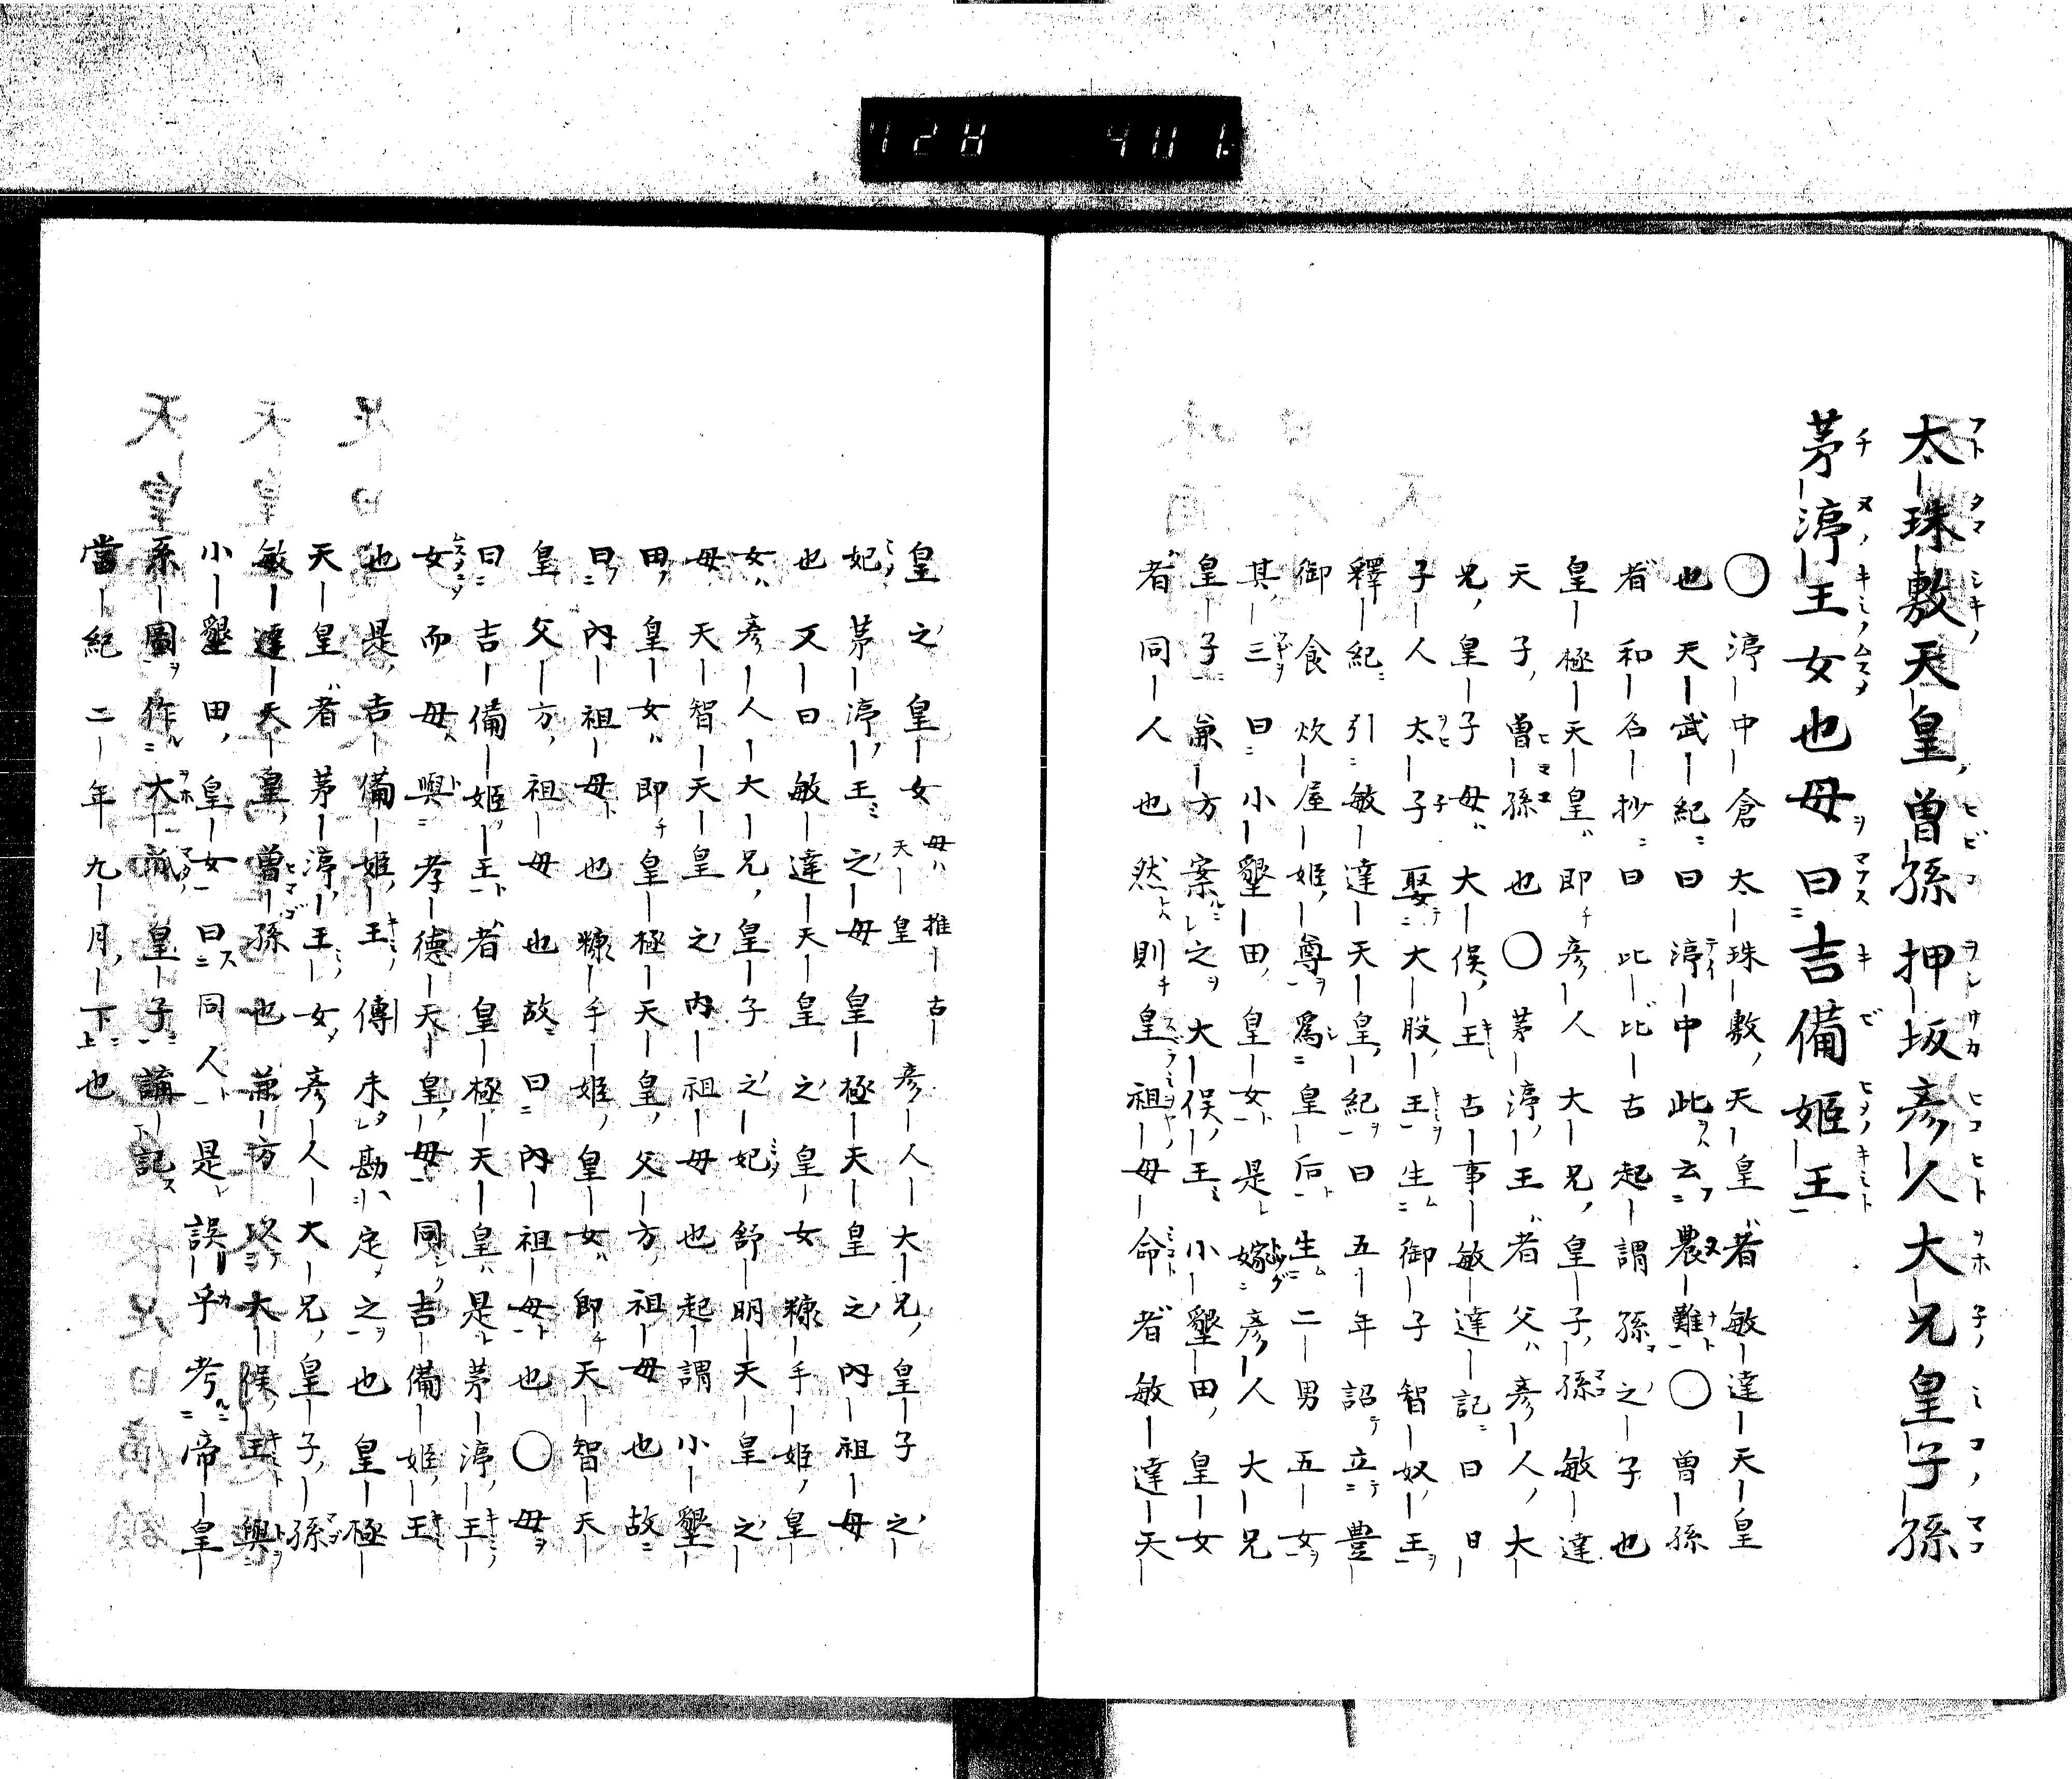 太珠敷天皇曽孫押坂彦人大兄皇子孫
茅渟王女也母曰吉備姫王
○渟中倉太珠敷天皇者敏達天皇
也天武紀曰渟中此云農難○曽孫
者和名抄曰比比古起謂孫之子也
皇極天皇即彦人大兄皇子孫敏達
天子曽孫也○茅渟王者父彦人大
兄皇子母大俣王古事敏達記曰日
子人太子娶大股王生御子智奴王
釋紀引敏達天皇紀曰五年詔立豊
御食炊屋姫尊爲皇后生二男五女
其三曰小墾田皇女是嫁彦人大兄
皇子兼方案之大俣王小墾田皇女
者同人也然則皇祖母命者敏達天
皇之皇女母推古天皇彦人大兄皇子之
妃茅渟王之母皇極天皇之内祖母
也又曰敏達天皇之皇女糠手姫皇
女彦人大兄皇子之妃舒明天皇之
母天智天皇之内祖母也起謂小墾
田皇女即皇極天皇父方祖母也故
曰内祖母也糠手姫皇女即天智天
皇父方祖母也故曰内祖母也○母
曰吉備姫王者皇極天皇是茅渟王
女而母與孝徳天皇母同吉備姫王
也是吉備姫王傳未勘定之也皇極
天皇者茅渟王女彦人大兄皇子孫
敏達天皇曽孫也兼方以大俣王與
小墾田皇女曰同人是誤乎考帝皇
系圖作大俣皇子講記
當紀二年九月下上也